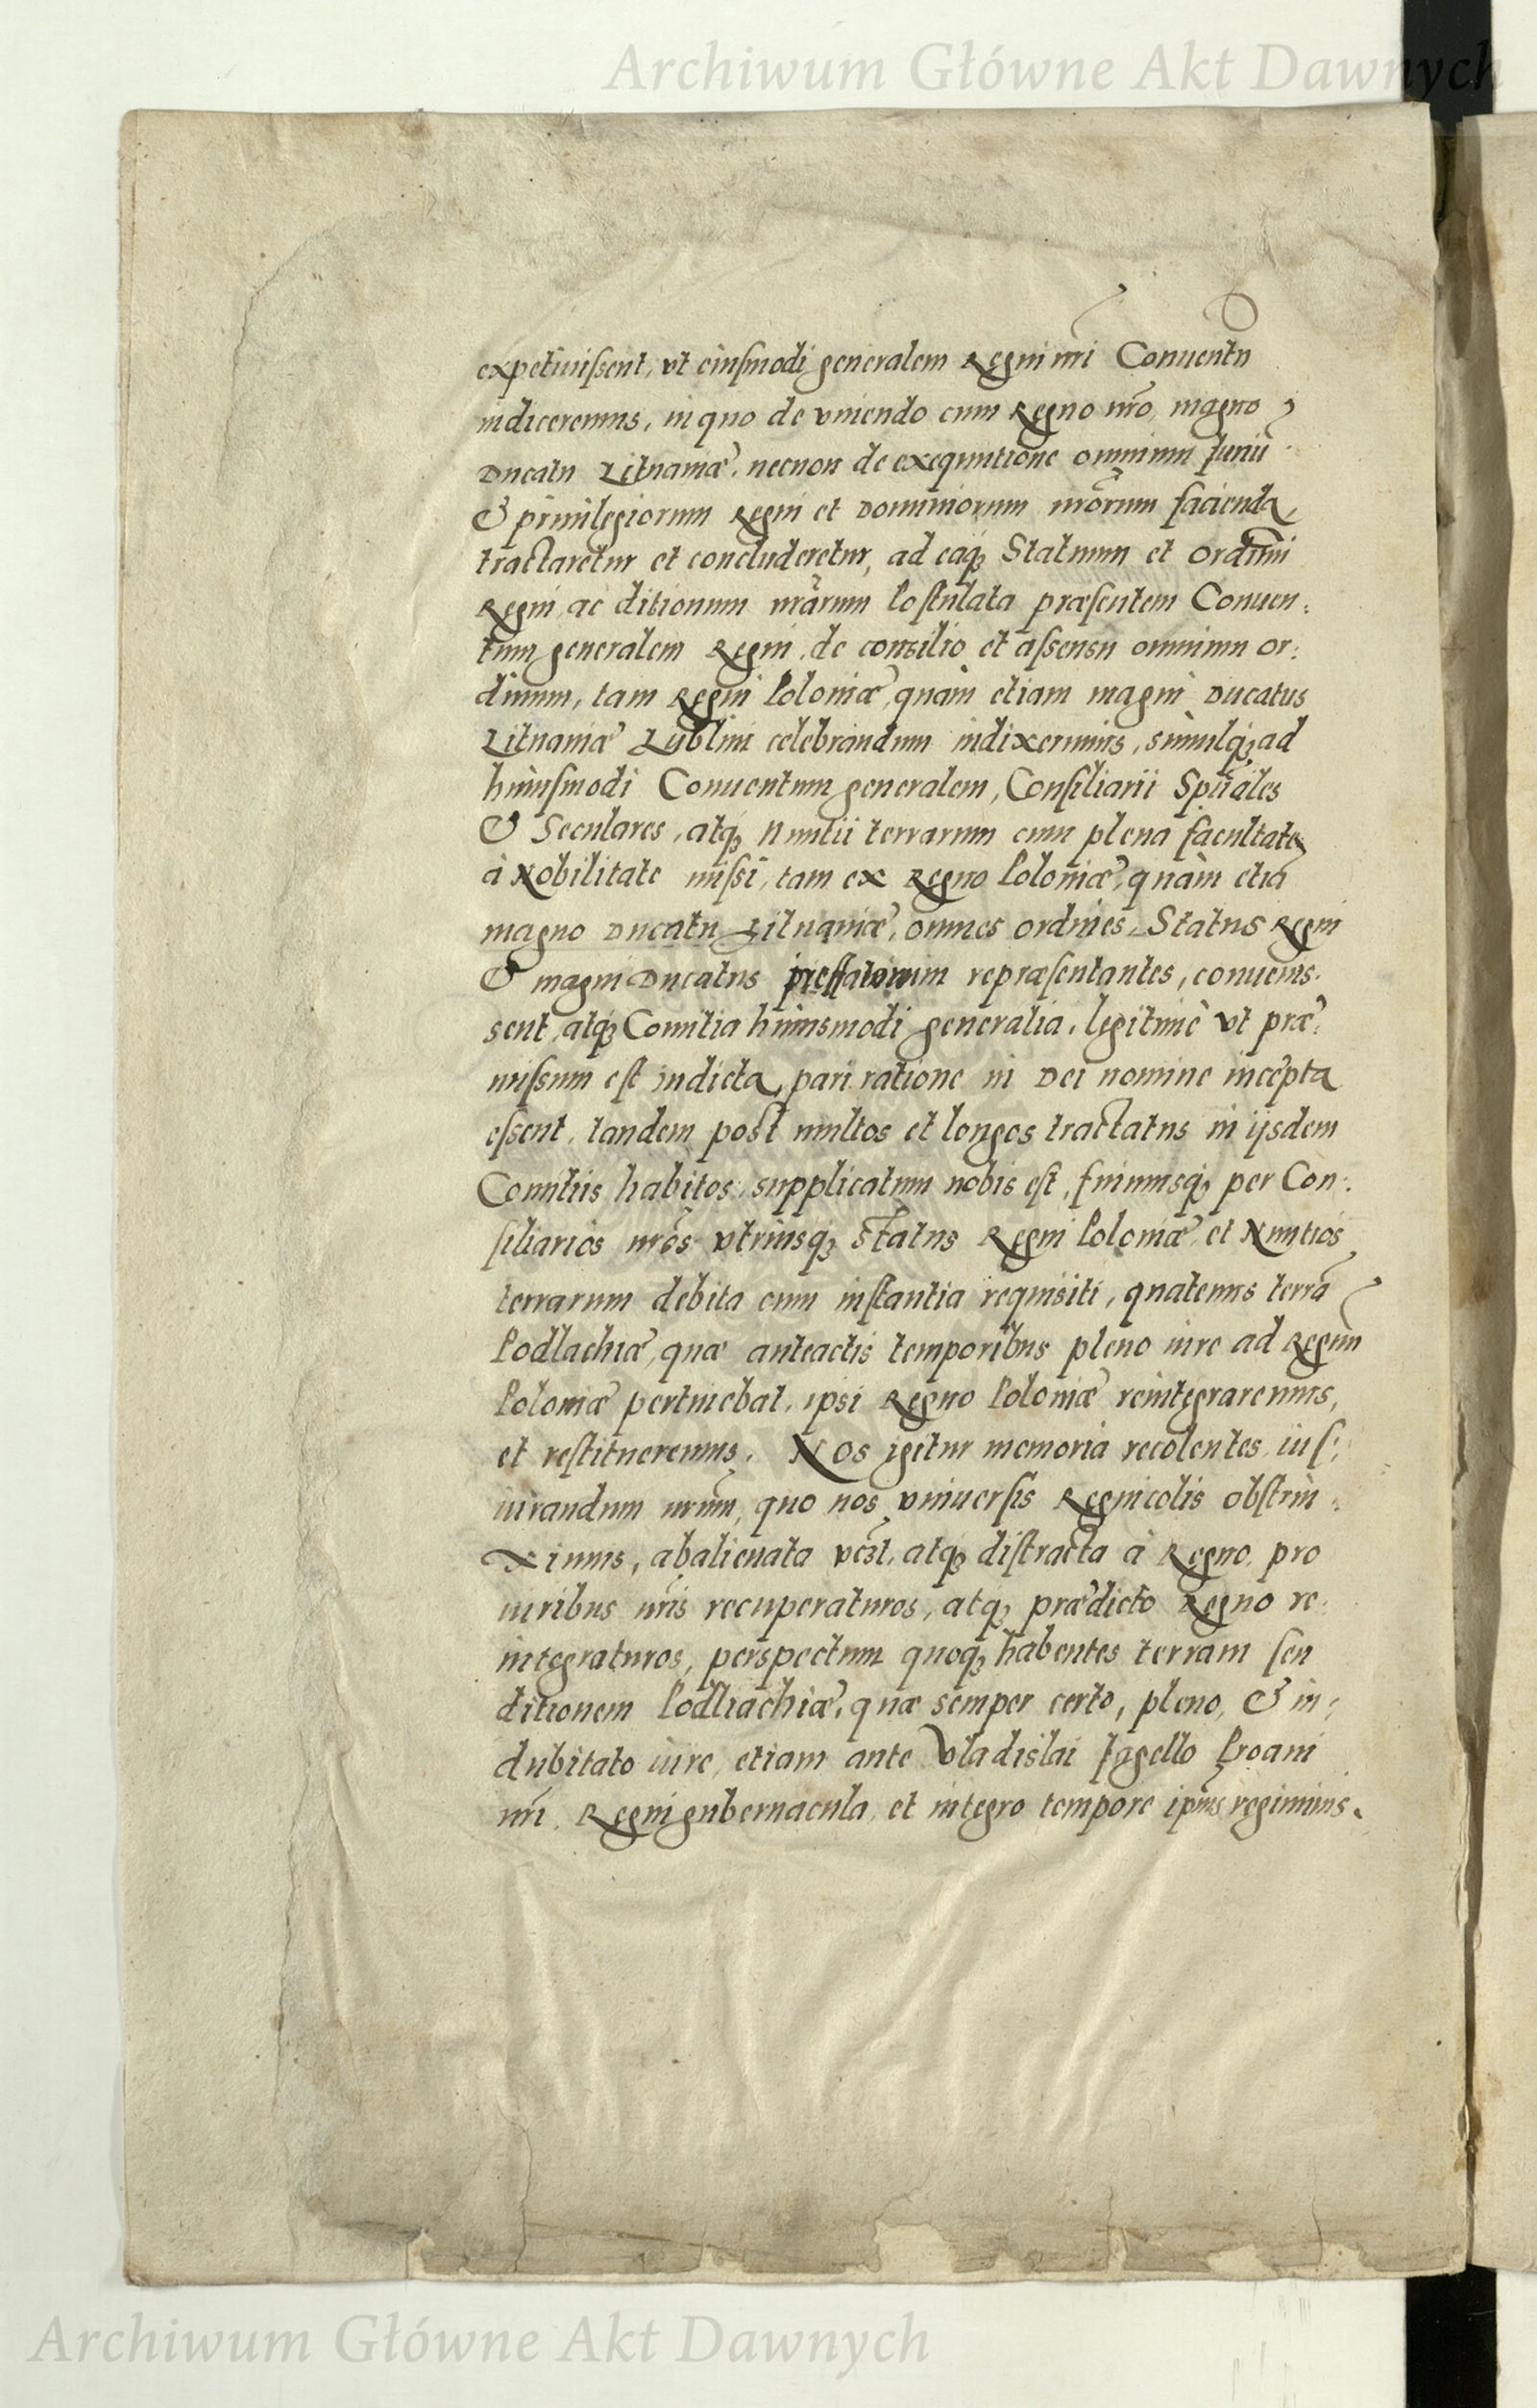 Archiwum Główne Akt Dawnych
expetiuiſsent, vt eiuſmodi generalem Regni nr̃i Conuentũ
indiceremus, in quo de vniendo cum Regno nr̃o, magno
Ducatu Lituaniæ, necnon de exequutione omnium Iuriũ
& priuilegiorum Regni et Dominiorum nr̃orum facienda,
tractaretur et concluderetur, ad eaq; Statuum et Ordinũ
Regni, ac ditionum nr̃arum Poſtulata præſentem Conuen:
tum generalem Regni, de consilio et aſsensu omnium or:
dinum, tam Regni Poloniæ, quàm etiam magni Ducatus
Lituaniæ Lublini celebrandum indixerimus, simulq; ad
huiuſmodi Conuentum generalem, Conſiliarii Sp̃uales
& Seculares, atq; Nuntii terrarum cum plena facultate
à Nobilitate miſsi, tam ex Regno Poloniæ, quàm etiã
magno Ducatu Lituaniæ, omnes ordines, Status Regni
& magni Ducatus præfatorum repræſentantes, conuenis:
sent, atq; Comitia huiusmodi generalia, legitimè vt præ:
miſsum eſt indicta, pari ratione in Dei nomine incepta
eſsent, tandem post multos et longos tractatus in ijsdem
Comitiis habitos, supplicatum nobis eſt, fuimusq; per Con:
ſiliarios nr̃os vtriusq; status Regni Poloniæ, et Nuntios
terrarum debita cum inſtantia requisiti, quatenus terrã
Podlachiæ, quæ anteactis temporibus pleno iure ad Regnũ
Poloniæ pertinebat, ipsi Regno Poloniæ reintegraremus,
et reſtitueremus. Nos igitur memoria recolentes iuſ:
iurandum nr̃um, quo nos vniuerſis Regnicolis obſtrin:
ximus, abalienata vel atq; diſtracta à Regno, pro
uiribus nr̃is recuperaturos, atq; prædicto Regno re:
integraturos, perspectum quoq; habentes terram ſeu
ditionem Podlachiæ, quæ semper certo, pleno, & in:
dubitato iure, etiam ante Vladislai Iagello Proaui
nr̃i, Regni gubernacula, et integro tempore ip̃ius regiminis.
Archiwum Główne Akt Dawnych